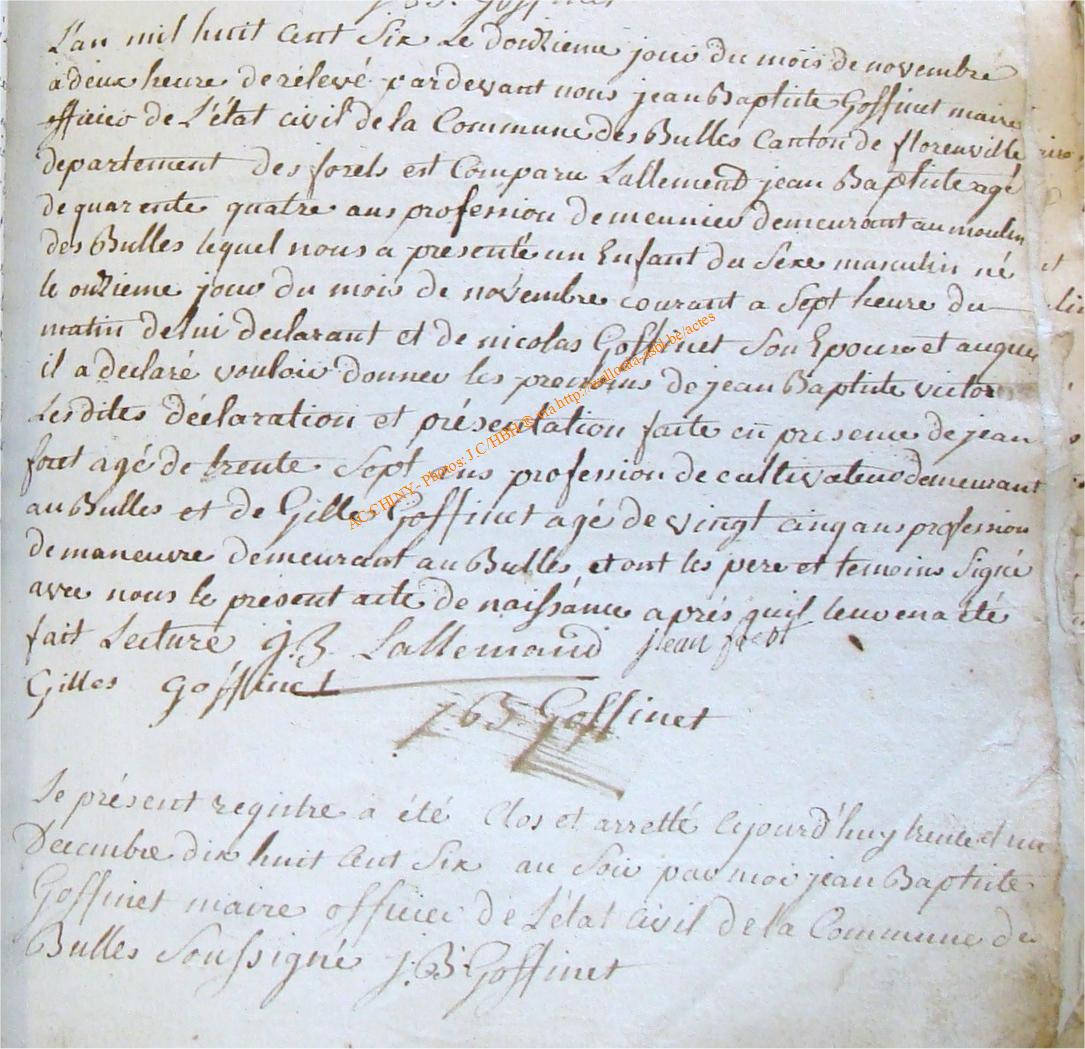 J.B. Goffinet
L'an mil huit cent Six Le douzieme jour du mois de novembre
a deux heure de rélevé pardevant nous jean Baptiste Goffinet maire
officier de L'état civil de la Commune des Bulles Canton de florenville
departement des forets est Comparu Lallemend jean Baptiste agé
de quarente quatre ans profession de meunier demeurant au moulin
des Bulles lequel nous a presenté un Enfant du Sexe masculin né
le onzieme jour du mois de novembre courant a Sept heure du
matin de lui declarant et de nicolas Goffinet Son Epouse et auquel
il a declaré vouloir donner les prenoms de jean Baptiste victor
Les dites déclaration et présentation faite en presence de jean
foet agé de trente Sept ans profession de cultivateur demeurant
au Bulles et de Gille Goffinet agé de vingt cinq ans profession
de maneuvre demeurant au Bulles et ont les pere et temoins Signé
avec nous le present acte de naissance aprés quil leur en a été
fait Lecture J.B. Lallemand jean
Gilles Goffinet
J.B. Goffinet
Le présent registre a été Clos et arretté ajourd'huy trente et un
Decembre dix huit cent Six au Soir par moi jean Baptiste
Goffinet maire officier de L'état Civil de la Commune de
Bulles Soussigné J.B. Goffinet
ACCHINY - Photos: J.C/HBH © via http://vallonia-asbl-be/actes